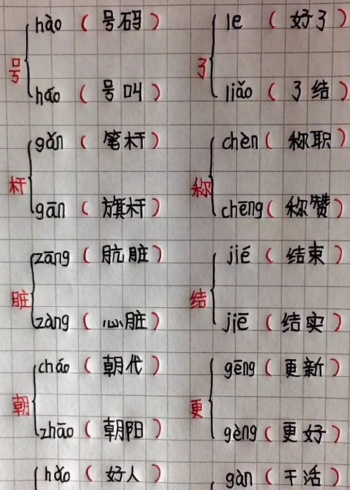 号
hào ( 号码 )
háo ( 号叫 )
杆
gǎn ( 笔杆 )
gān ( 旗杆 )
脏
zāng ( 肮脏 )
zàng ( 心脏 )
朝
cháo ( 朝代 )
zhāo ( 朝阳 )
hǎo ( 好人 )
了
le ( 好了 )
liǎo ( 了结 )
称
chèn ( 称职 )
chēng ( 称赞 )
结
jié ( 结束 )
jiē ( 结实 )
更
gēng ( 更新 )
gèng ( 更好 )
gàn ( 干活 )